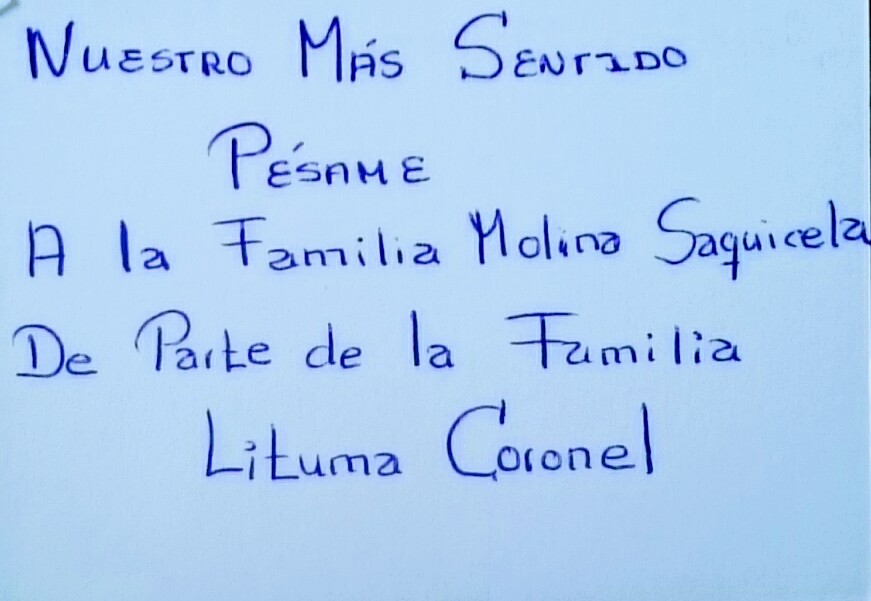 NUESTRO MÁS SENTIDO
PÉSAME
A la Familia Molina Saquicela
De Parte de la Familia
Lituma Coronel